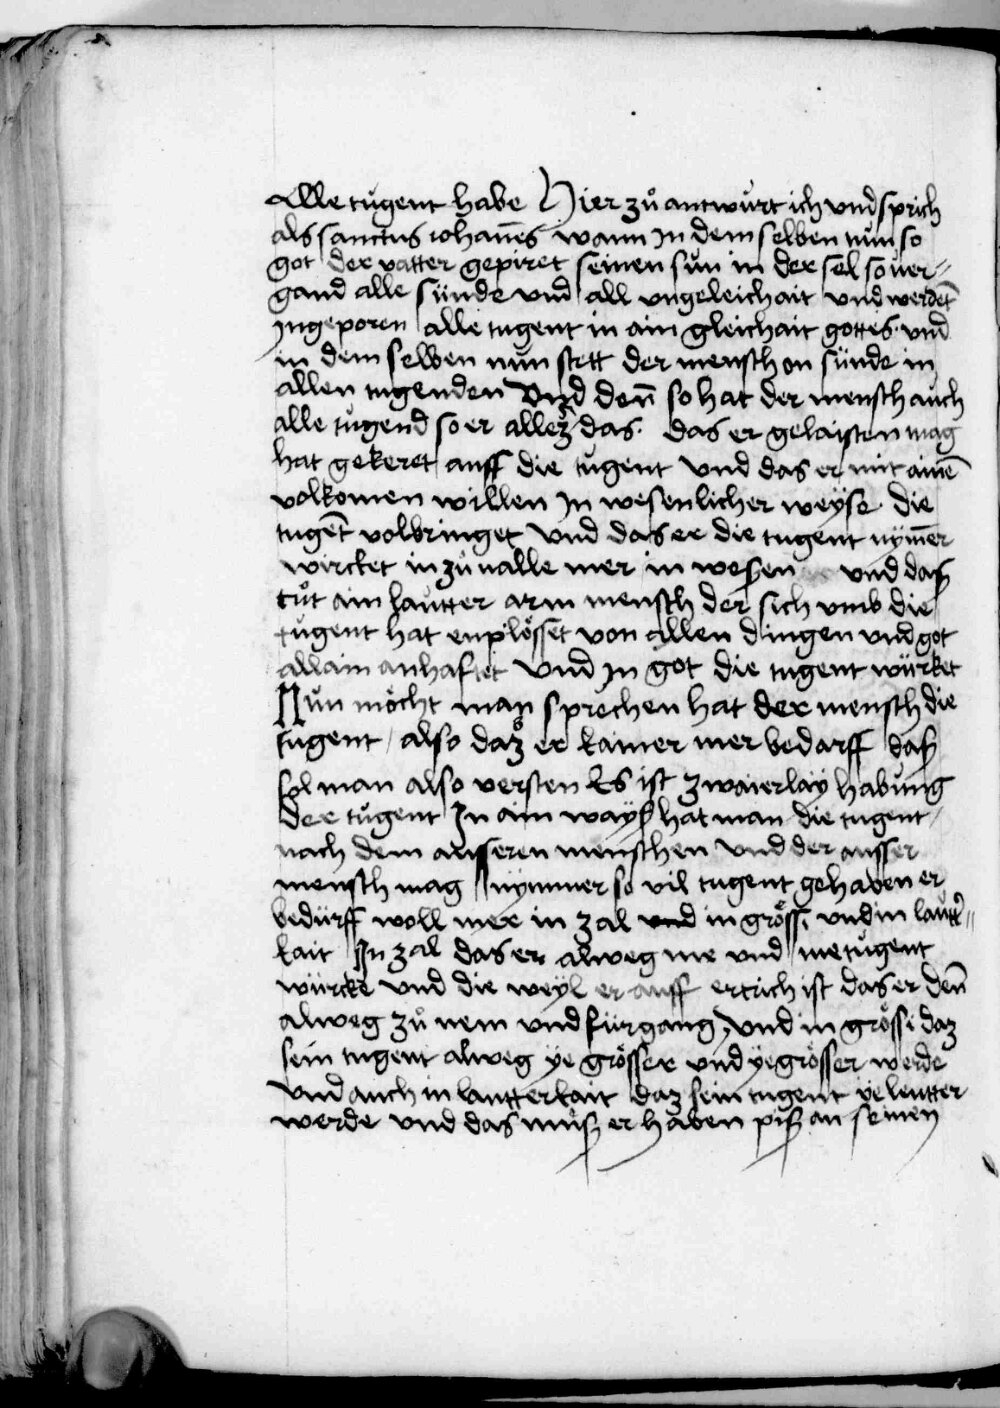 Alle tugent habe Hier zů antwurt ich vnd sprich
als sanctus iohan̄es wann Jn dem selben nun so
got der vatter gepiret seinen sun in der sel so uer=
gand alle sünde vnd all vngeleichait vnd werdet̄
Jngeporen alle tugent in ain gleichait gottes vnd
in dem selben nun stett der mensch on sünde in
allen tugenden Vnd den̄ so hat der mensch auch
alle tugend so er allez das das er gelaisten mag
hat gekeret auff die tugent Vnd das er mit ainē
volkomen willen Jn wesenlicher weÿse die
tugēt volbringet Vnd das er die tugent nÿm̄er
wircket in zů ualle mer in wesen vnd daß
tůt ain lautter arm mensch der sich vmb die
tugent hat enplösset von allen dingen vnd got
allain anhaftet Vnd Jn got die tugent würket
Nun möcht man sprechen hat der mensch die
tugent also daz er kainer mer bedarff daß
sol man also versten Es ist zwaierlaÿ habung
der tugent Jn ain wayß hat man die tugent
nach dem ausseren menschen Vnd der ausser
mensch mag nÿmmer so vil tugent gehaben er
bedürff woll mer in zal vnd in gröss vnd in lautt̄=
kait Jn zal das er alweg me vnd me tugent
würcke Vnd die weÿl er auff ertrich ist das er den̄
alweg zů nem vnd fürgang Vnd in grösse daz
sein tugent alweg ÿe grösser vnd ÿe grösser werde
Vnd auch in lautterkait daz sein tugent ÿe leutter
werde vnd das muß er haben piß an seinen